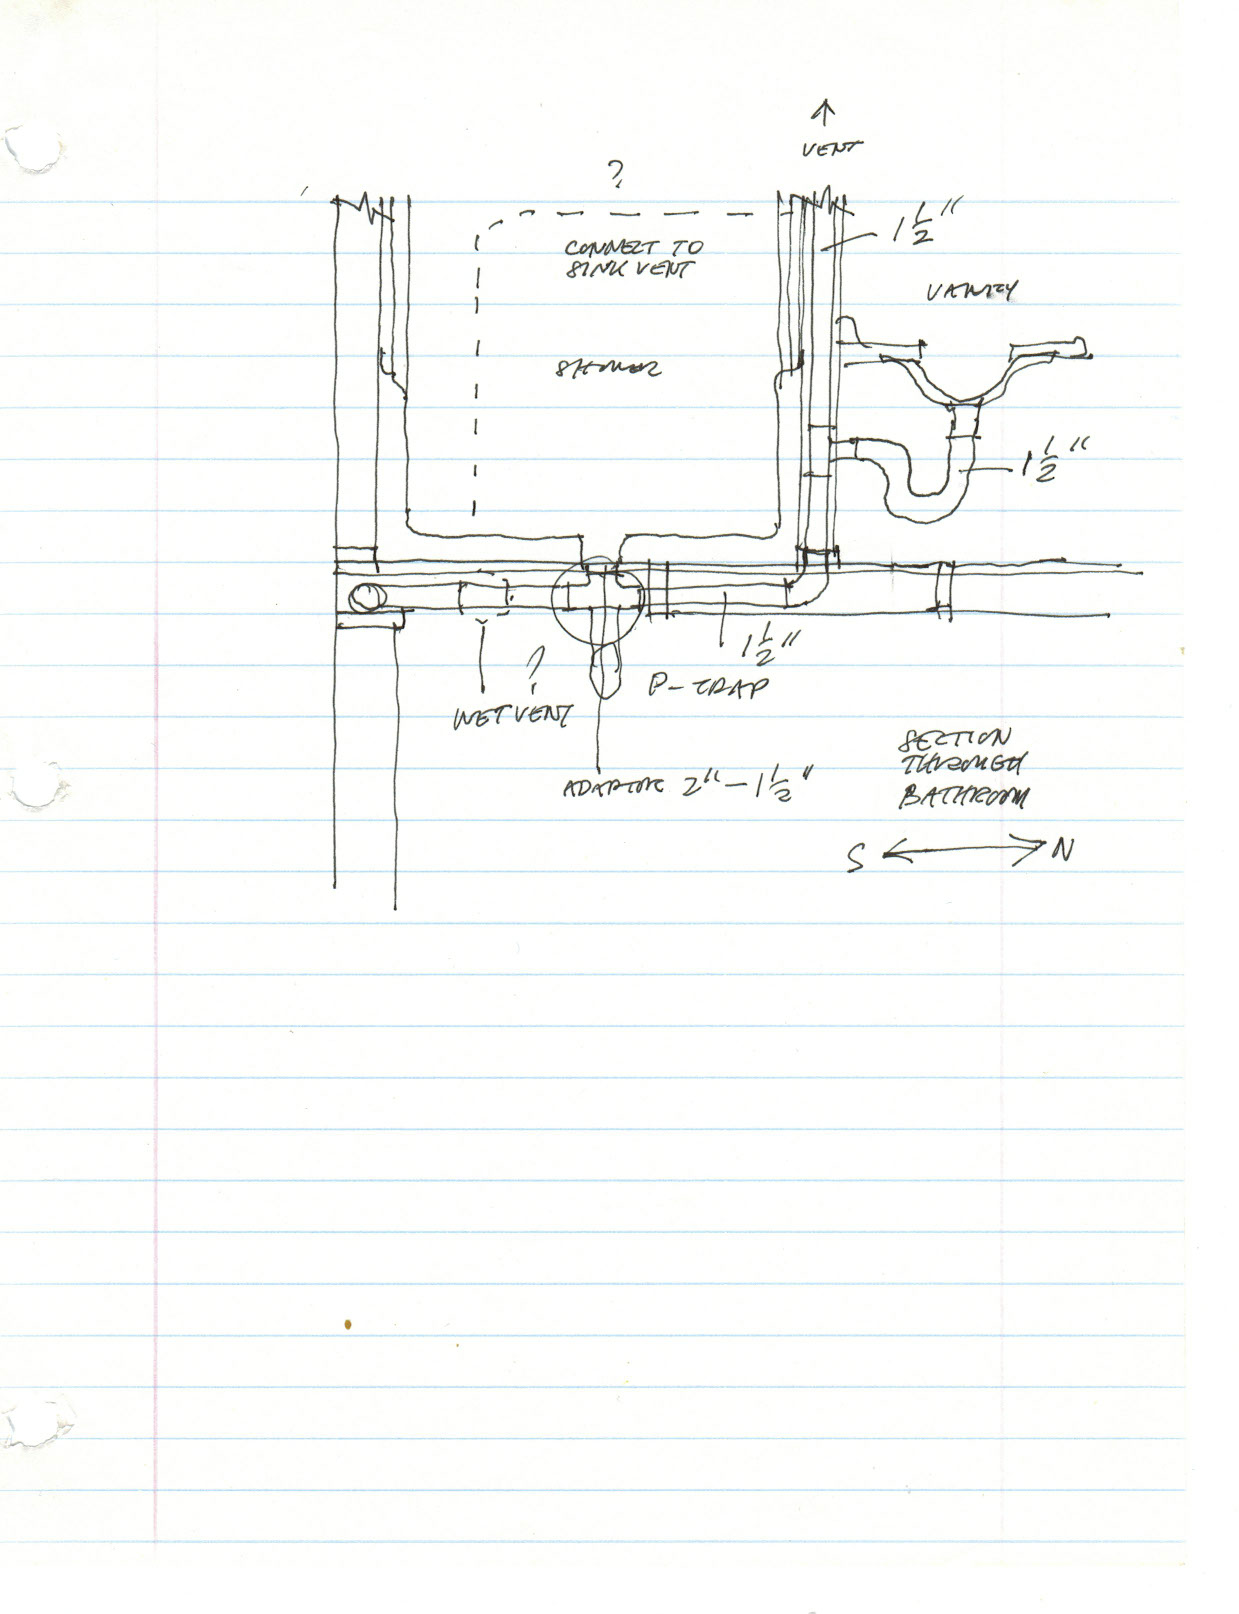 VENT
?
1 1/2"
CONNECT TO
SINK VENT
VANITY
SHOWER
1 1/2"
1 1/2"
?
P-TRAP
WET VENT
SECTION
THROUGH
BATHROOM
ADAPTOR 2"-1 1/2"
S N